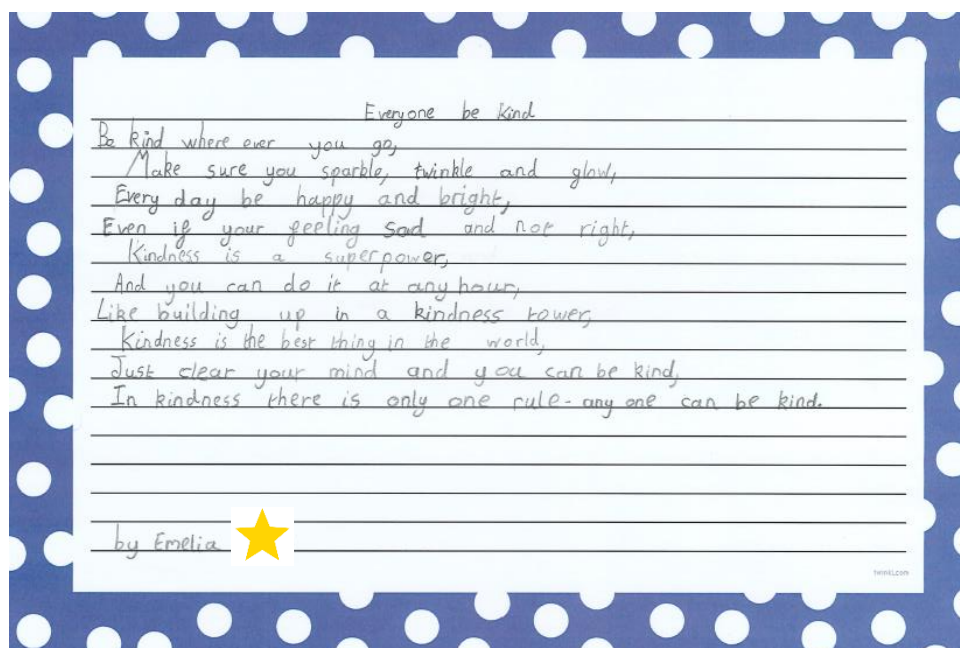 Everyone be Kind
Be kind where over you go,
Make sure you sparble, twinkle and glow,
Every day be happy and bright,
Even if your feeling sad and not right,
Kindness is a superpower,
And you can do it at any hour,
Like building up in a kindness tower,
Kindness is the best thing in the world,
Just clear your mind and you can be kind,
In kindness there is only one rule - any one can be kind.
by Emelia
twinkl.com